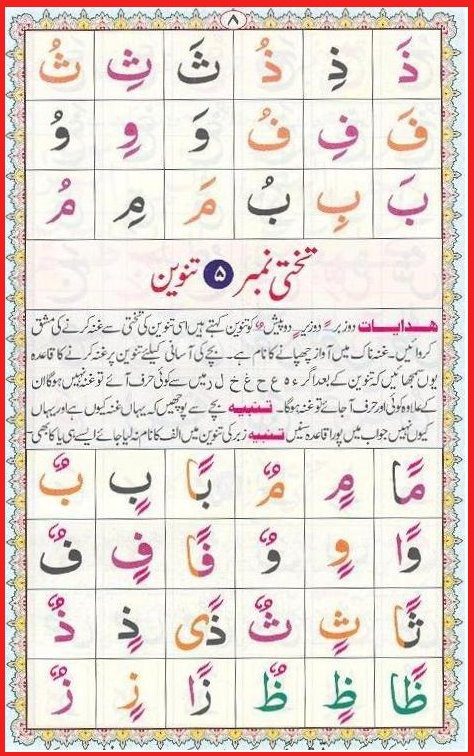 ۸
ذَ ذِ ذُ ثَ ثِ ثُ
فَ فِ فُ وَ وِ وُ
بَ بِ بُ مَ مِ مُ
تختی نمبر ۵ تنوین
ھدایات دو زبر ً دو زیر ٍ دو پیش ٌ کو تنوین کہتے ہیں اسی تنوین کی تختی سے غنہ کرنے کی مشق
کروائیں۔ غنہ ناک میں آواز چھپانے کا نام ہے۔ بچے کی آسانی کیلئے تنوین پر غنہ کرنے کا قاعدہ
یوں سمجھائیں کہ تنوین کے بعد اگر ء ہ ع ح غ خ ل ر میں سے کوئی حرف آئے تو غنہ نہیں ہوگا ان
کے علاوہ کوئی اور حرف آ جائے تو غنہ ہوگا۔ تنبیہ بچے سے پوچھیں کہ یہاں غنہ کیوں ہے اور یہاں
کیوں نہیں جواب میں پورا قاعدہ سنیں تنبیہ زبر کی تنوین میں الف کا نام نہ لیا جائے ایسے ہی یا کا بھی۔
مًا مٍ مٌ بًا بٍ بٌ
وًا وٍ وٌ فًا فٍ فٌ
ثًا ثٍ ثٌ ذًى ذٍ ذٌ
ظًا ظٍ ظٌ زًا زٍ زٌ